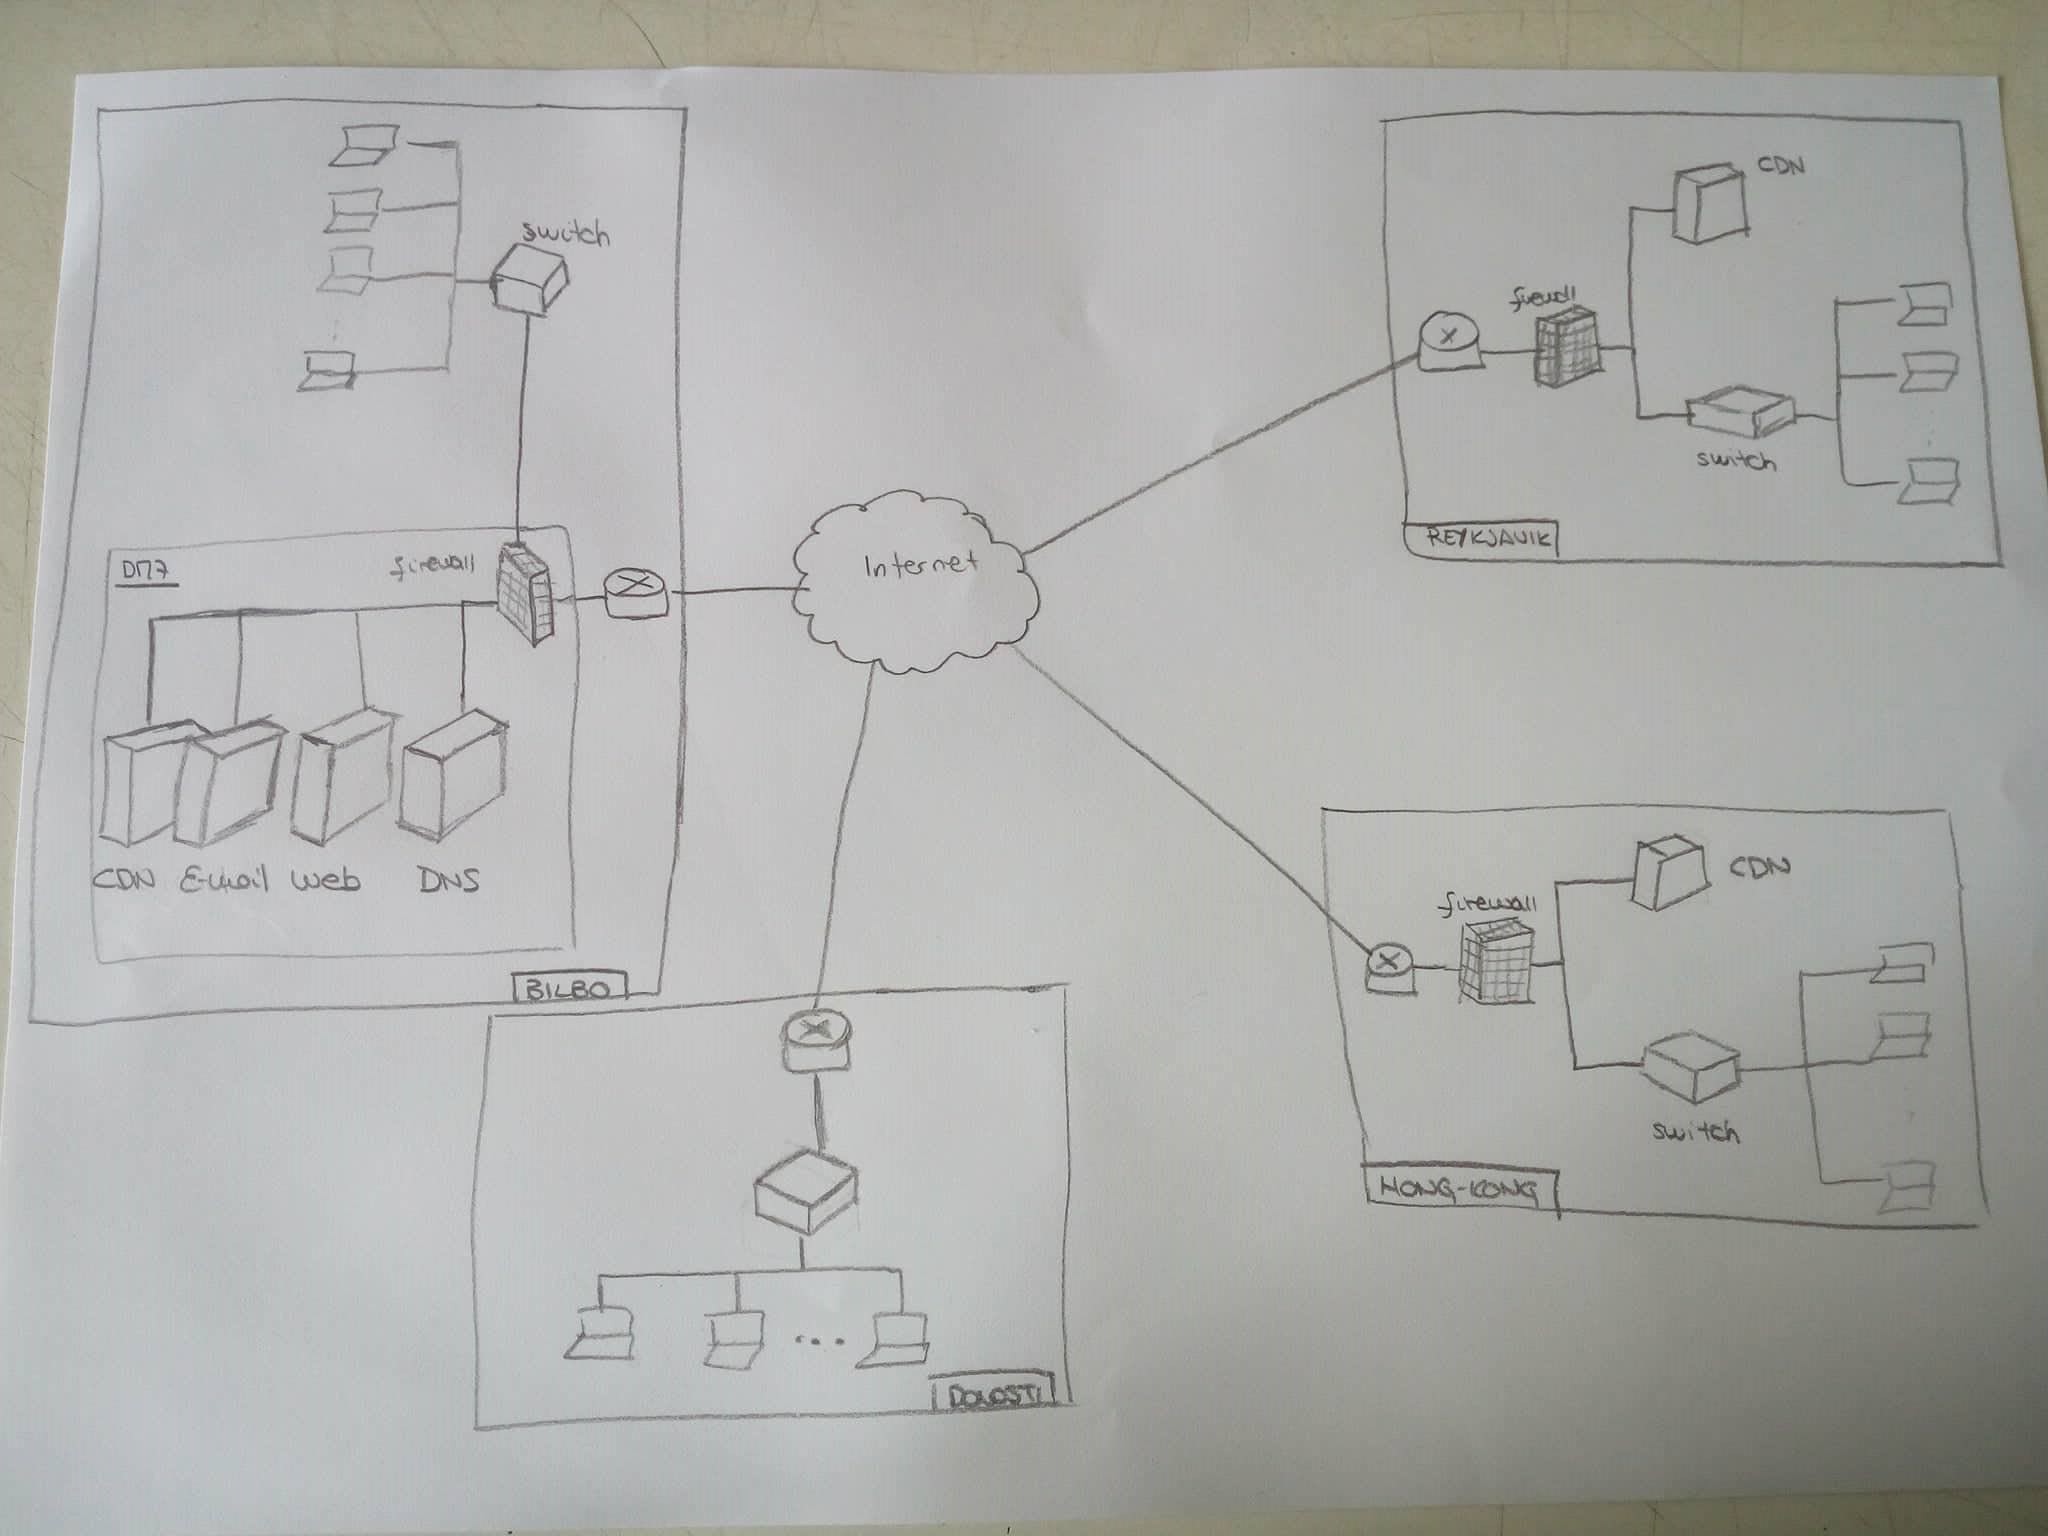 switch
DMZ
firewall
CDN E-mail Web DNS
BILBO
Internet
CDN
firewall
switch
REYKJAVIK
CDN
firewall
switch
HONG-KONG
DONOSTI